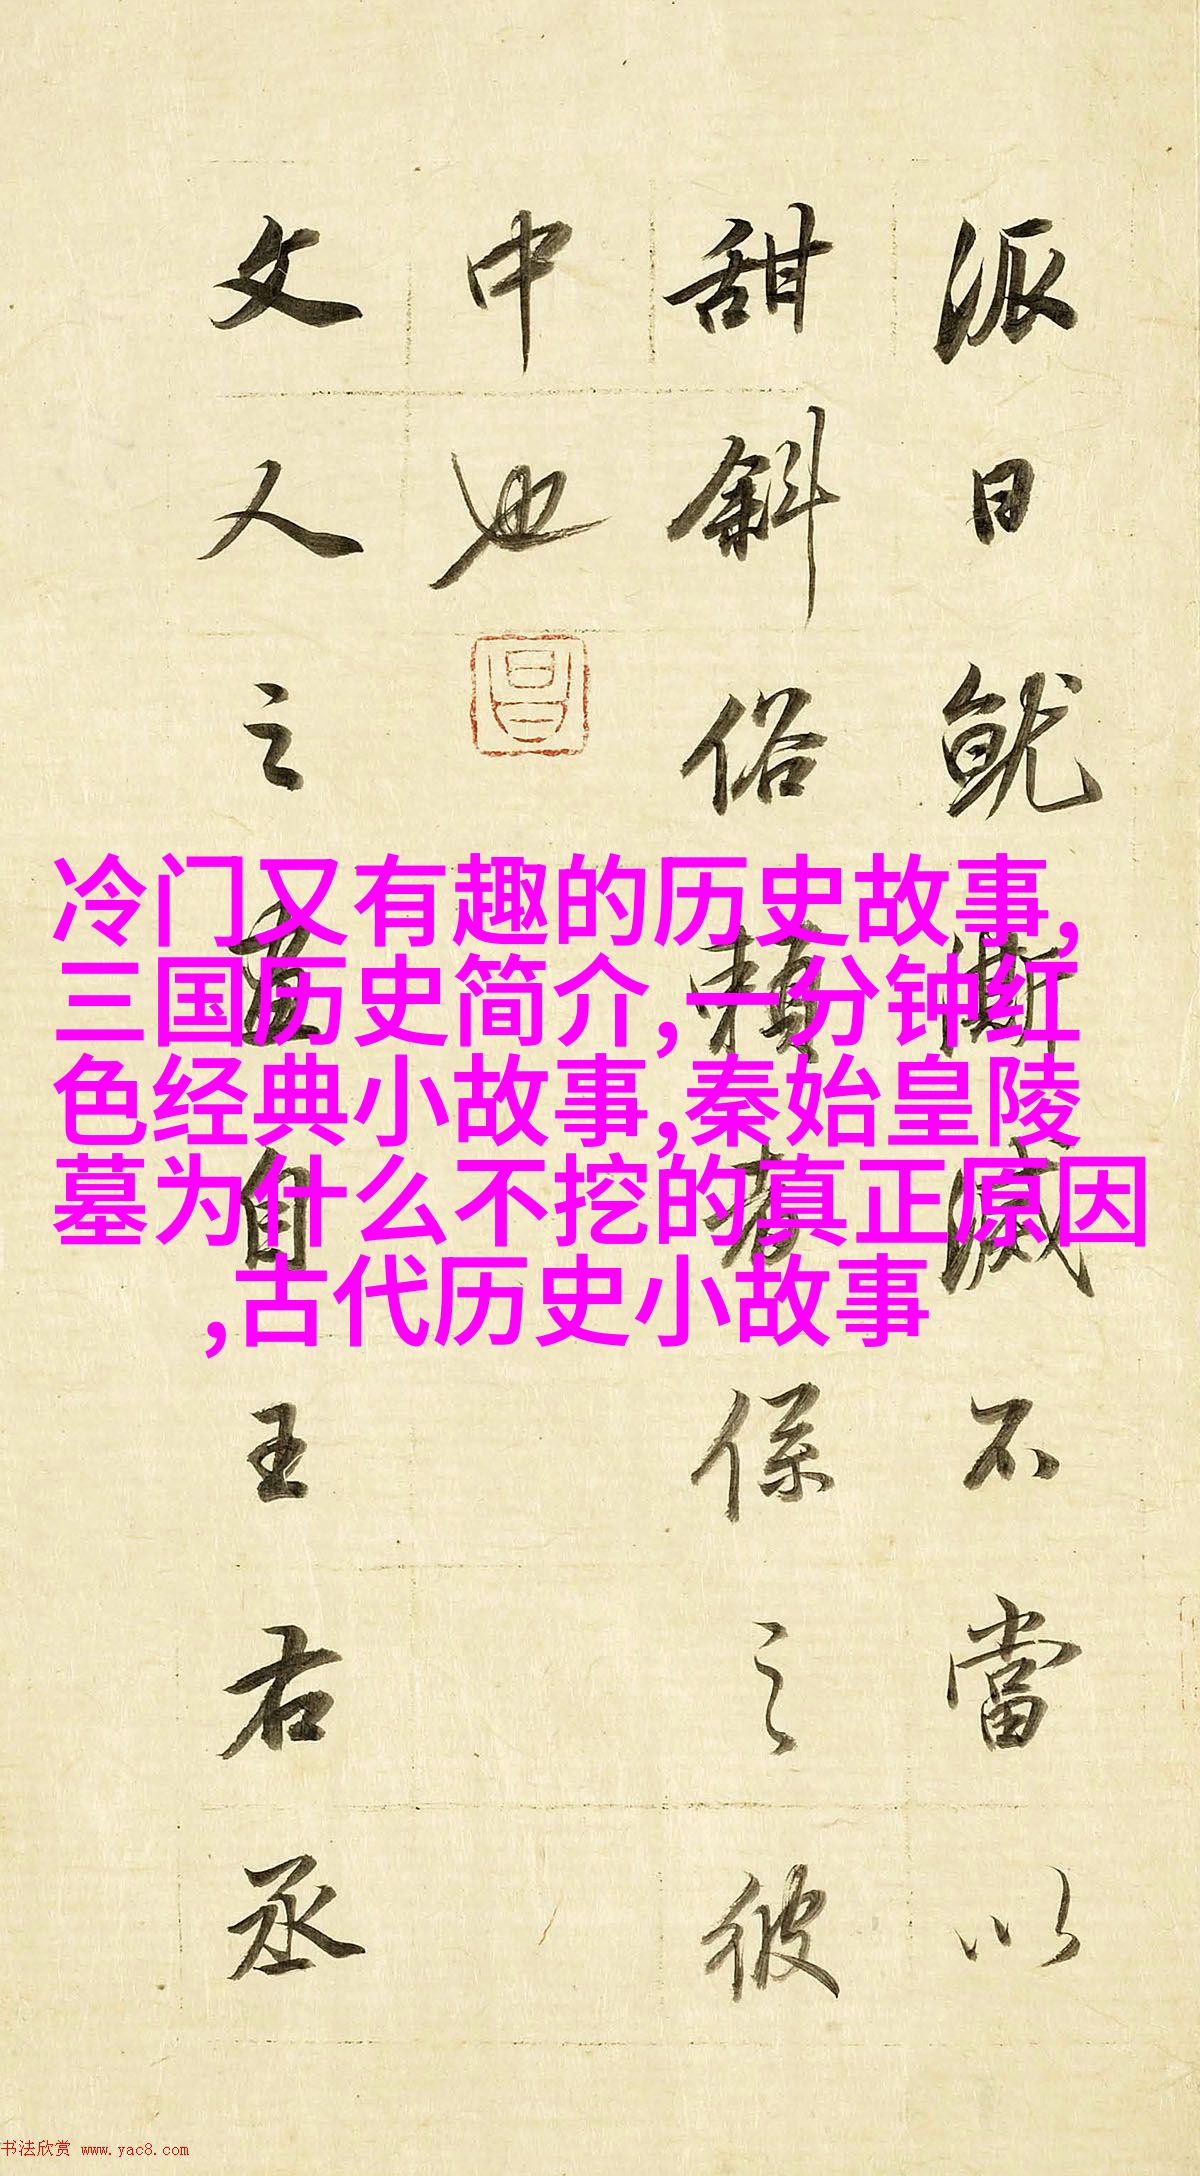 派日就澌滅不當以
甜斜俗賴者係之彼
中也
昌
文人之畫自王右丞
冷门又有趣的历史故事,
三国历史简介,一分钟红
色经典小故事,秦始皇陵
墓为什么不挖的真正原因
,古代历史小故事
书法欣赏 www.yac8.com